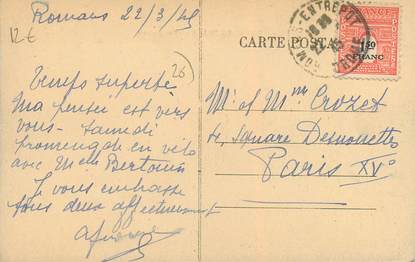 Romans 22/3/45
12€
26
Temps superbe
Ma pensée est vers
vous - samedi
promenade en vélo
avec Melle Bertouin
Je vous embrasse
tous deux affectueusement
CARTE POSTALE
ROMANS-ENTREPOT
FRANCE
POSTES
1F50
FRANC
M' et Mme Crozet
4, Square Desnouettes
Paris XVº